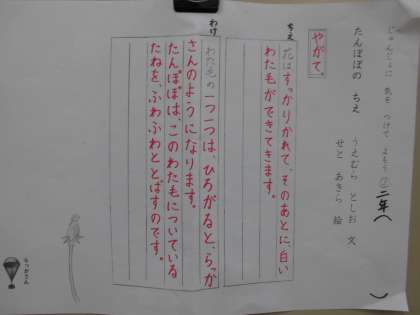 じゅんじょに 気を つけて よもう ②
二年(  )
たんぽぽの ちえ
うえむら としお 文
せと あきら 絵
やがて、
ちえ
花はすっかりかれて、そのあとに、白い
わた毛ができてきます。
わけ
わた毛の一つ一つは、ひろがると、らっか
さんのようになります。
たんぽぽは、このわた毛についている
たねを、ふわふわととばすのです。
らっかさん